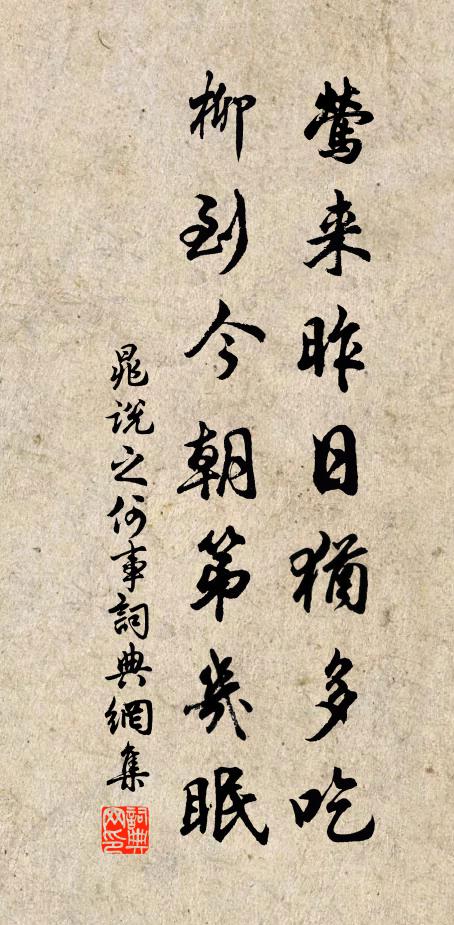 鶯来昨日猶多吃
柳到今朝第幾眠
晁说之何事詞典網集
詞典网印